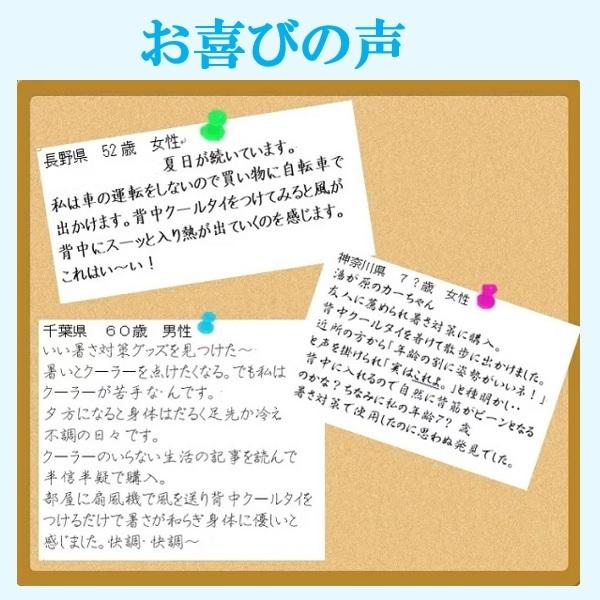 お喜びの声
長野県 52歳 女性
夏日が続いています。
私は車の運転をしないので買い物に自転車で
出かけます。背中クールタイをつけてみると風が
背中にスーッと入り熱が出ていくのを感じます。
これはい～い！
神奈川県 7?歳 女性
湯が原のカーちゃん
友人に薦められ暑さ対策に購入。
背中クールタイを着けて散歩に出かけました。
近所の方から「年齢の割に姿勢がいいネ！」
と声を掛けられ「実はこれよ。」と種明かし‥
背中に入れるので自然に背筋がピーンとなる
のかな？ちなみに私の年齢7?歳
暑さ対策で使用したのに思わぬ発見でした。
千葉県 60歳 男性
いい暑さ対策グッズを見つけた～
暑いとクーラーを点けたくなる。でも私は
クーラーが苦手な・んです。
夕方になると身体はだるく足先か冷え
不調の日々です。
クーラーのいらない生活の記事を読んで
半信半疑で購入。
部屋に扇風機で風を送り背中クールタイを
つけるだけで暑さが和らぎ身体に優しいと
感じました。快調・快調～